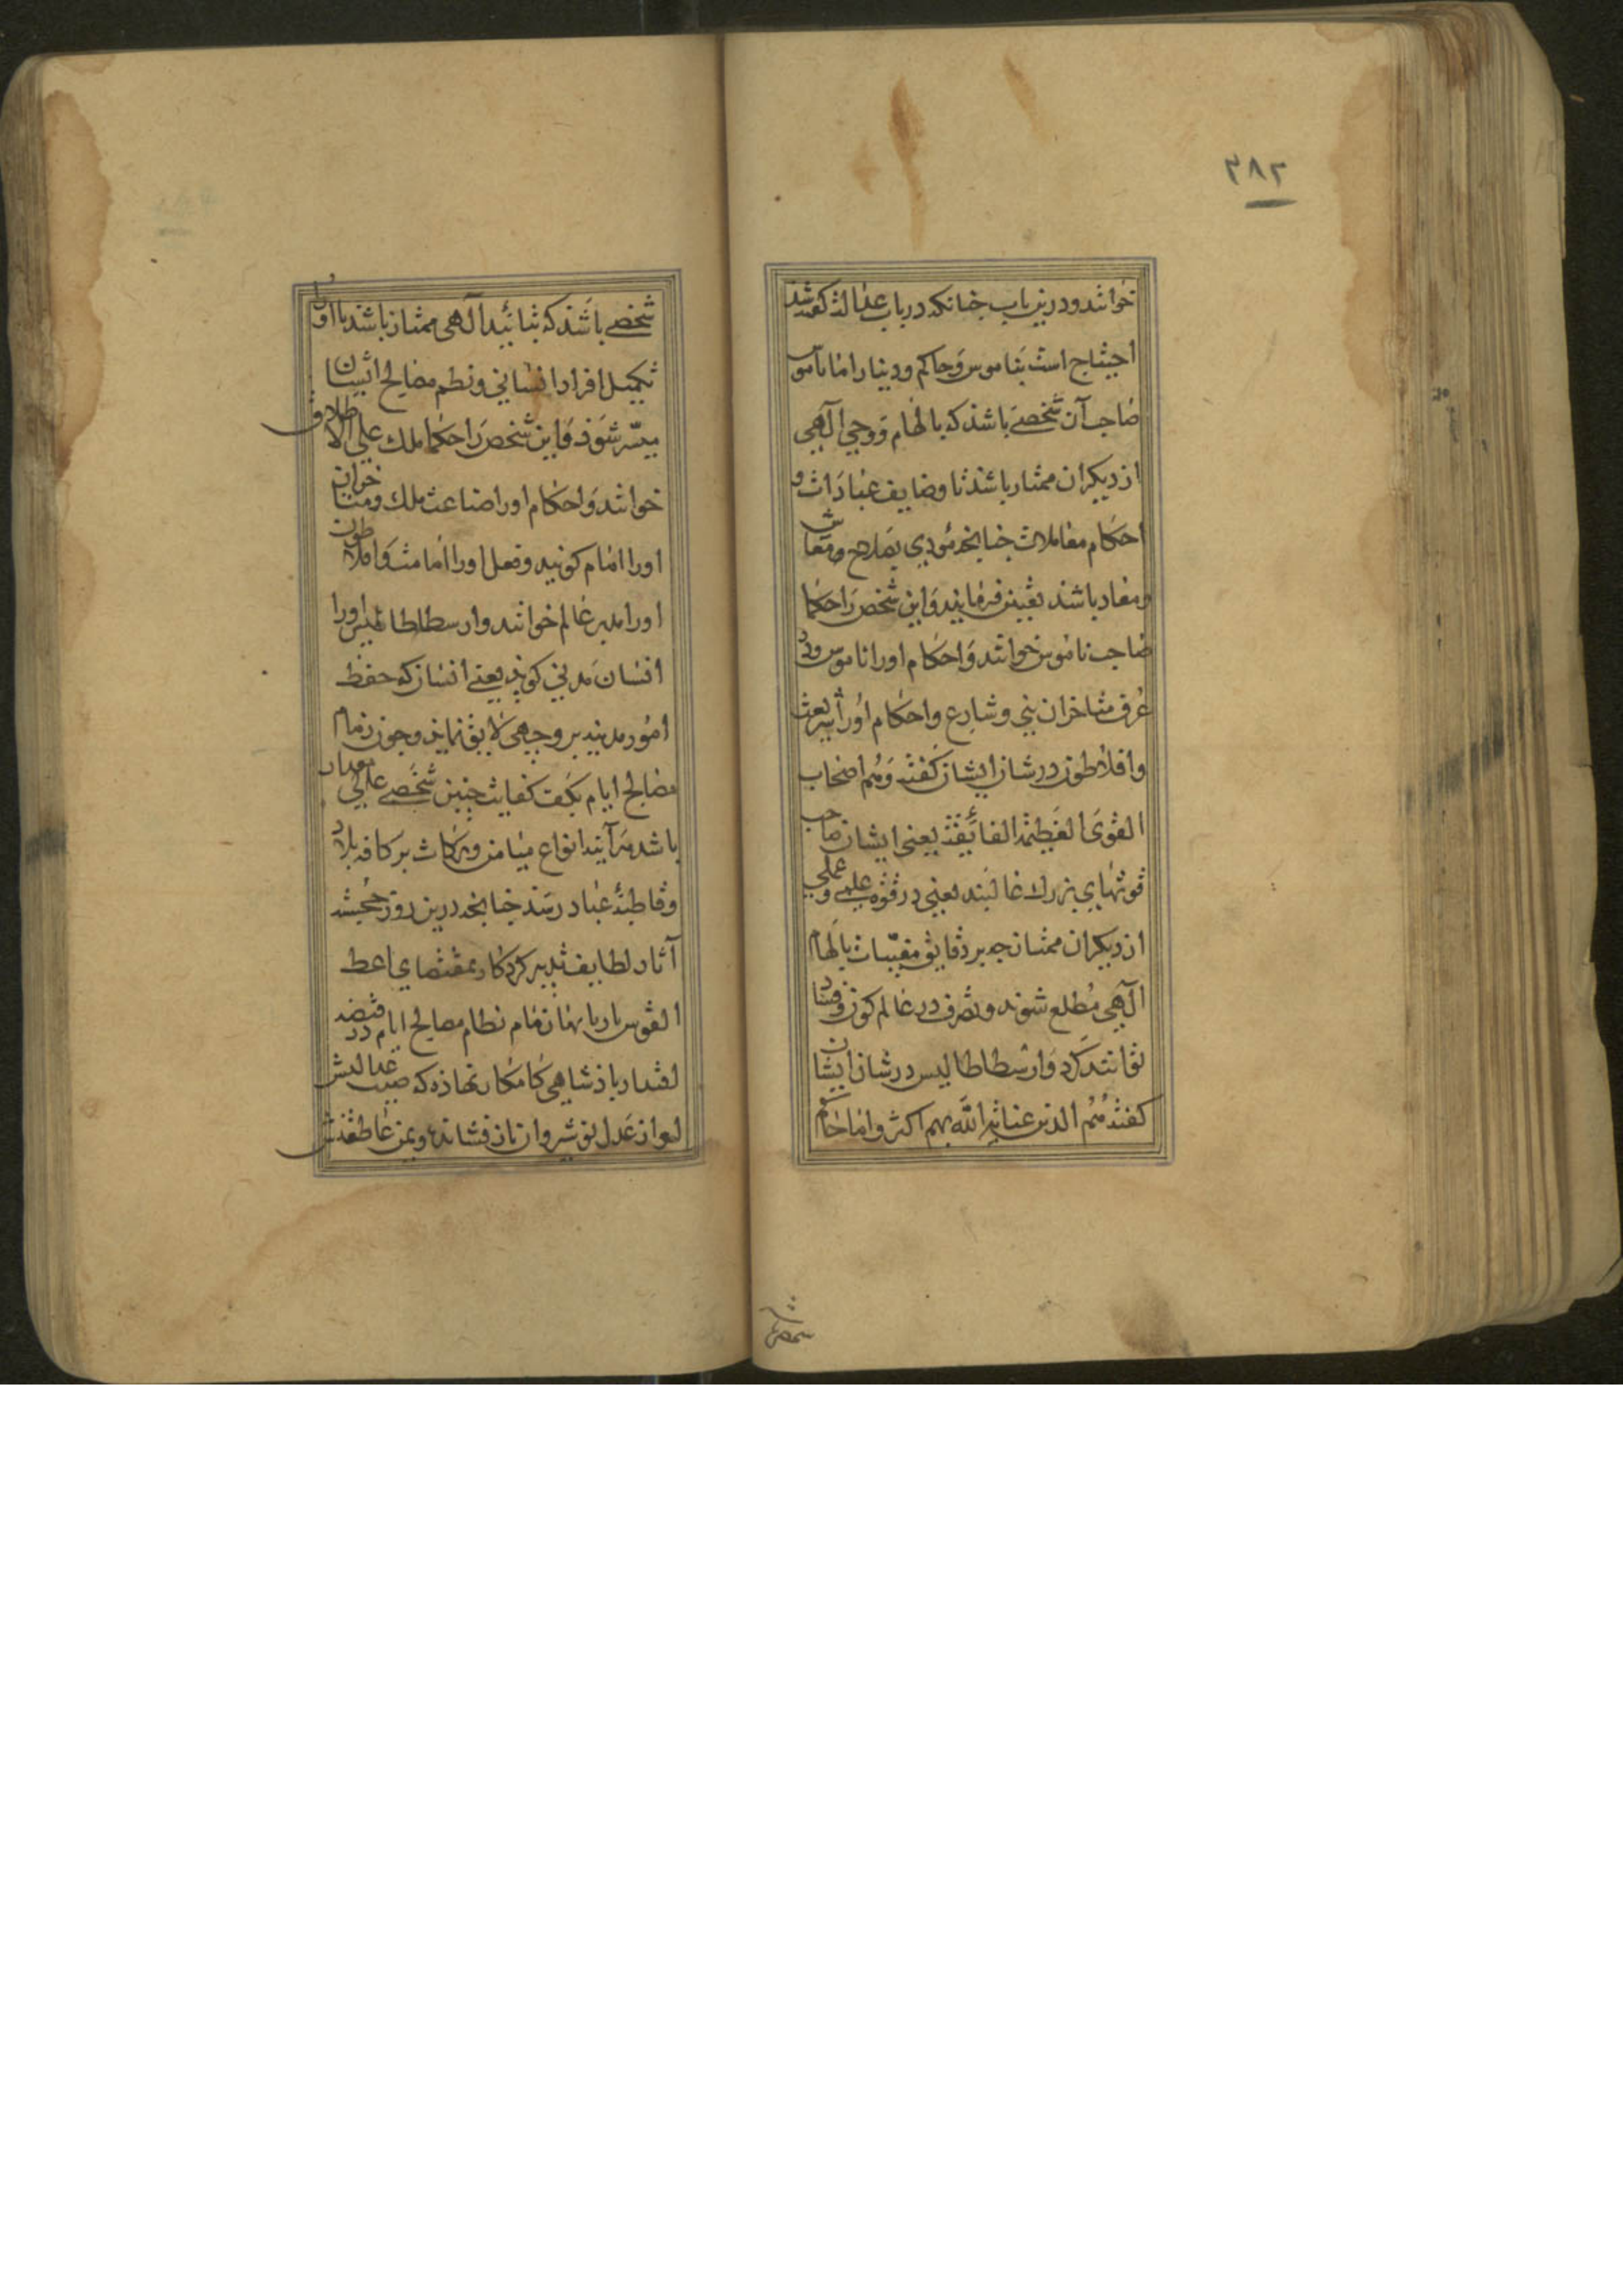 ۳۸۲
خوانند و درین باب چنانکه در باب عدالة گفته شد
احتیاج است بناموس و حاکم و دینار اما ناموس
صاحب آن شخصی باشد که بالهام و وحی آلهی
از دیکران ممتاز باشد تا وضایف عبادات و
احکام معاملات چنانچه مؤدی بصلاح و معاش
و معاد باشد تعیین فرمایند و این شخص را حکما
صاحب ناموس خوانند و احکام او را ناموس و در
عرف متاخران نبی و شارع و احکام او را شریعت
و افلاطون در شان ایشان کفته و هم اصحاب
القوی العظیمة الفائقة یعنی ایشان صاحب
قوتهای بزرك غالبند یعنی در قوة علمی و عملی
از دیکران ممتاز چه بر دقایق مغیبات بالهام
آلهی مطلع شوند و تصرف در عالم کون و فساد
توانند کرد و ارسطاطالیس در شان ایشان
کفته هم الذین عنایة الله بهم اکثر و اما حاکم
شخصی
شخصی باشد که بتائید آلهی ممتاز باشد تا او را
تکمیل افراد انسانی و نظم مصالح ایشان
میسر شود و این شخص را حکما ملك علی الاطلاق
خوانند و احکام او را صناعت ملك و متاخران
او را امام کویند و فعل او را امامت و افلاطون
او را مدبر عالم خوانند و ارسطاطالیس او را
انسان مدنی کوید یعنی انسان که حفظ
امور مدنیه بر وجهی لایق نماید و چون زمام
مصالح ایام بکف کفایت چنین شخصی عالی مقدار
باشد هرآینه انواع میامن و برکات بر کافه بلاد
و قاطبۀ عباد رسد چنانچه درین روز خجسته
آثار لطایف تدبیر کردکار بمقتضای اعط
القوس باریها زمام نظام مصالح ایام در قبضه
اقتدار پادشاهی کامکار نهاده که صیت عدالتش
از عدل نوشیروان باز فشانده و یمن عاطفتش